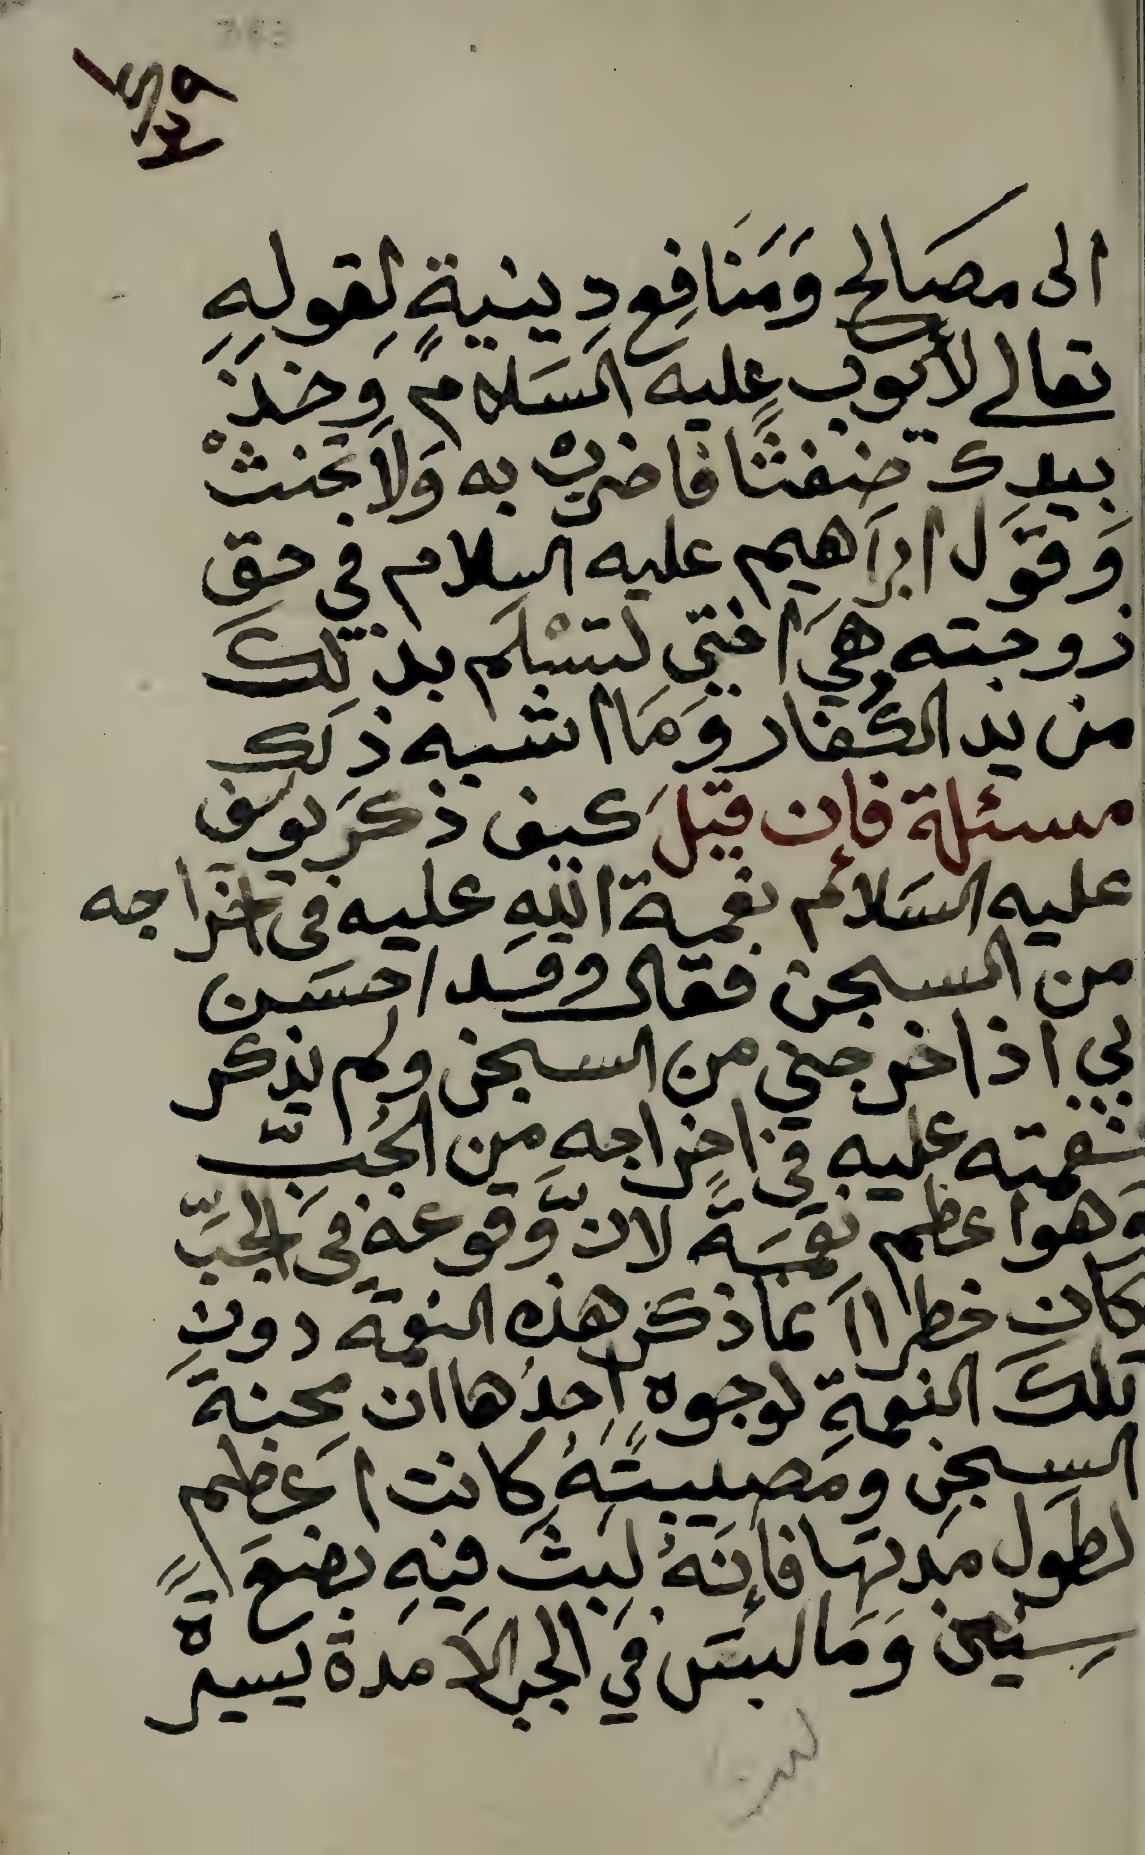 الى مصَالح وَمَنَافِع دِينيةٍ لِقولِهِ
تعالى لأيوب عليه السَلام وَخذْ
بيدِك ضغثًا فاضربْ به وَلاَ تحنثْ
وَقوَل ابرَاهيم عليه السلام في حق
زوجته هيَ اختي لتسْلَم بذلك
من يد الكُفار وَمَا اشبه ذلك
مسئلة فإن قيلَ كيف ذكرَ يوسف
عليه السَلام نعمة اللهِ عليه في اخراجه
من السجن فقال وقد احسَن
بي اذ اخرجني من السجن ولم يذكر
نعمته عليه في اخراجهِ من الجُبّ
وَهو اعظم نعمَةً لانّ وقوعهُ في الجبِّ
كانَ خطرا انما ذكرَ هذه النعمة دون
تلكَ النعمةِ لوجوهٍ احدُها ان محنةَ
السجنِ ومَصيبتَهُ كانت اعَظم
لطَول مَدتها فإنَهُ لبِثَ فيهِ بضعَ
سِنين وَمَا لبث في الجب الا مَدة يسيرةً